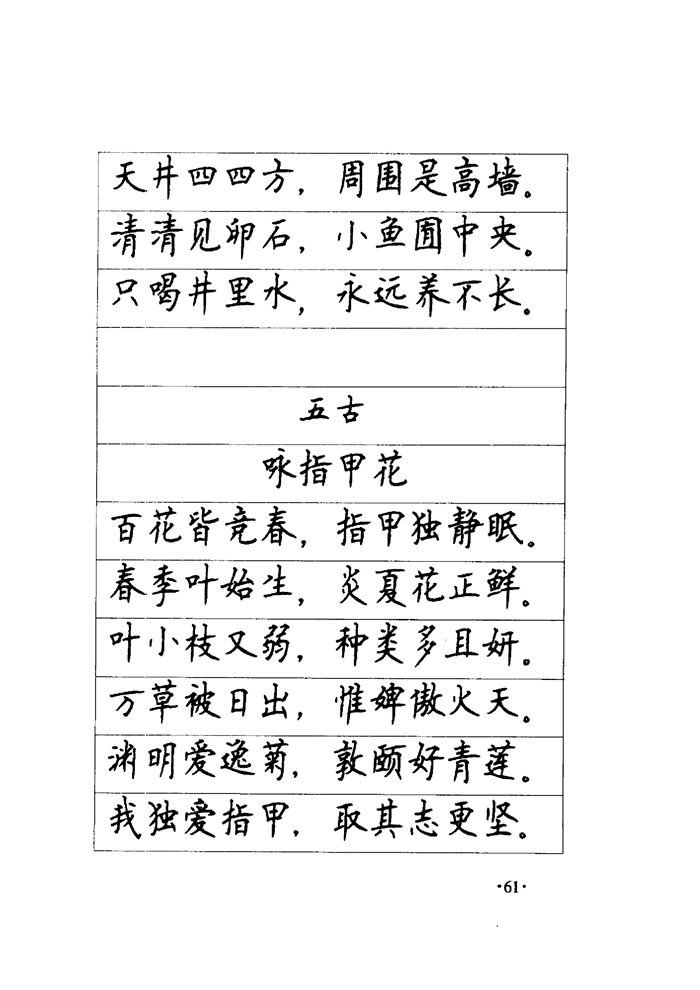 天井四四方，周围是高墙。
清清见卵石，小鱼囿中央。
只喝井里水，永远养不长。
五古
咏指甲花
百花皆竞春，指甲独静眠。
春季叶始生，炎夏花正鲜。
叶小枝又弱，种类多且妍。
万草被日出，惟婢傲火天。
渊明爱逸菊，敦颐好青莲。
我独爱指甲，取其志更坚。
·61·